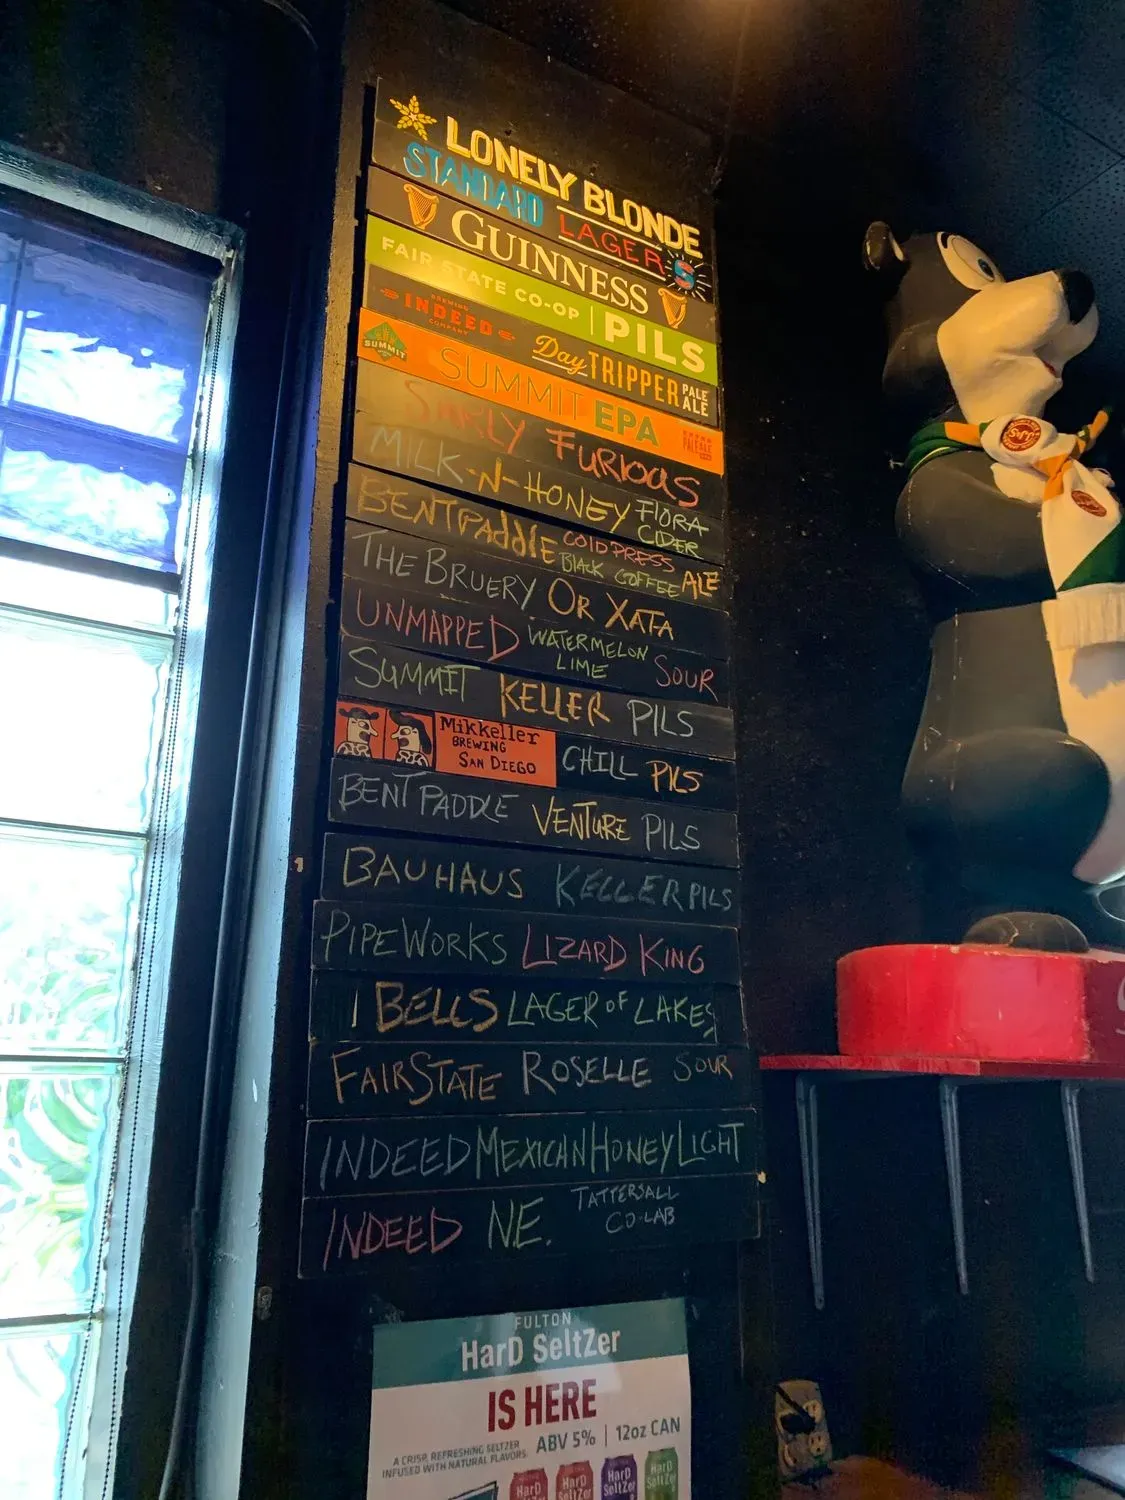 LONELY BLONDE
STANDARD LAGER S
GUINNESS
FAIR STATE CO-OP | PILS
BREWING INDEED COMPANY Day TRIPPER PALE ALE
SUMMIT SUMMIT EPA EXTRA PALE ALE
SURLY FURIOUS
MILK-N-HONEY FLORA CIDER
BENTPADDLE COLD PRESS BLACK COFFEE ALE
THE BRUERY OR XATA
UNMAPPED WATERMELON LIME SOUR
SUMMIT KELLER PILS
Mikkeller BREWING SAN DIEGO CHILL PILS
BENT PADDLE VENTURE PILS
BAUHAUS KELLERPILS
PIPEWORKS LIZARD KING
BELLS LAGER OF LAKES
FAIRSTATE ROSELLE SOUR
INDEED MEXICAN HONEY LIGHT
INDEED N.E. TATTERSALL CO-LAB
FULTON
HarD SeltZer
IS HERE
A CRISP, REFRESHING SELTZER
INFUSED WITH NATURAL FLAVORS.
ABV 5% | 12oz CAN
HarD SeltZer HarD SeltZer HarD SeltZer HarD SeltZer